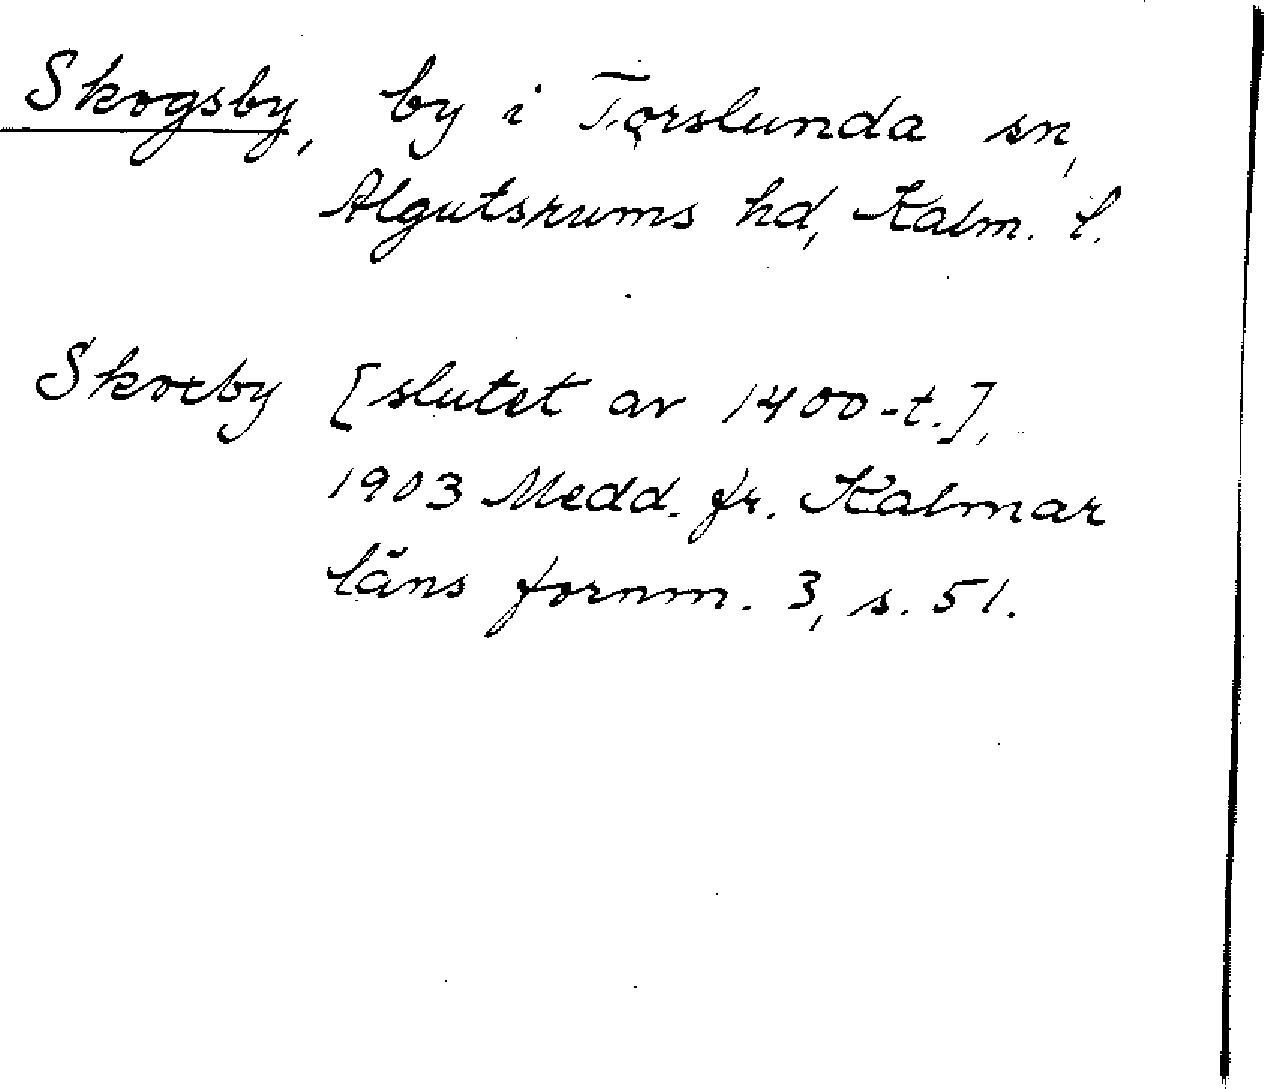 Skogsby, by i Torslunda sn,
Algutsrums hd, Kalm. l.
Skoxby [slutet av 1400-t.],
1903 Medd. fr. Kalmar
läns fornm. 3, s. 51.